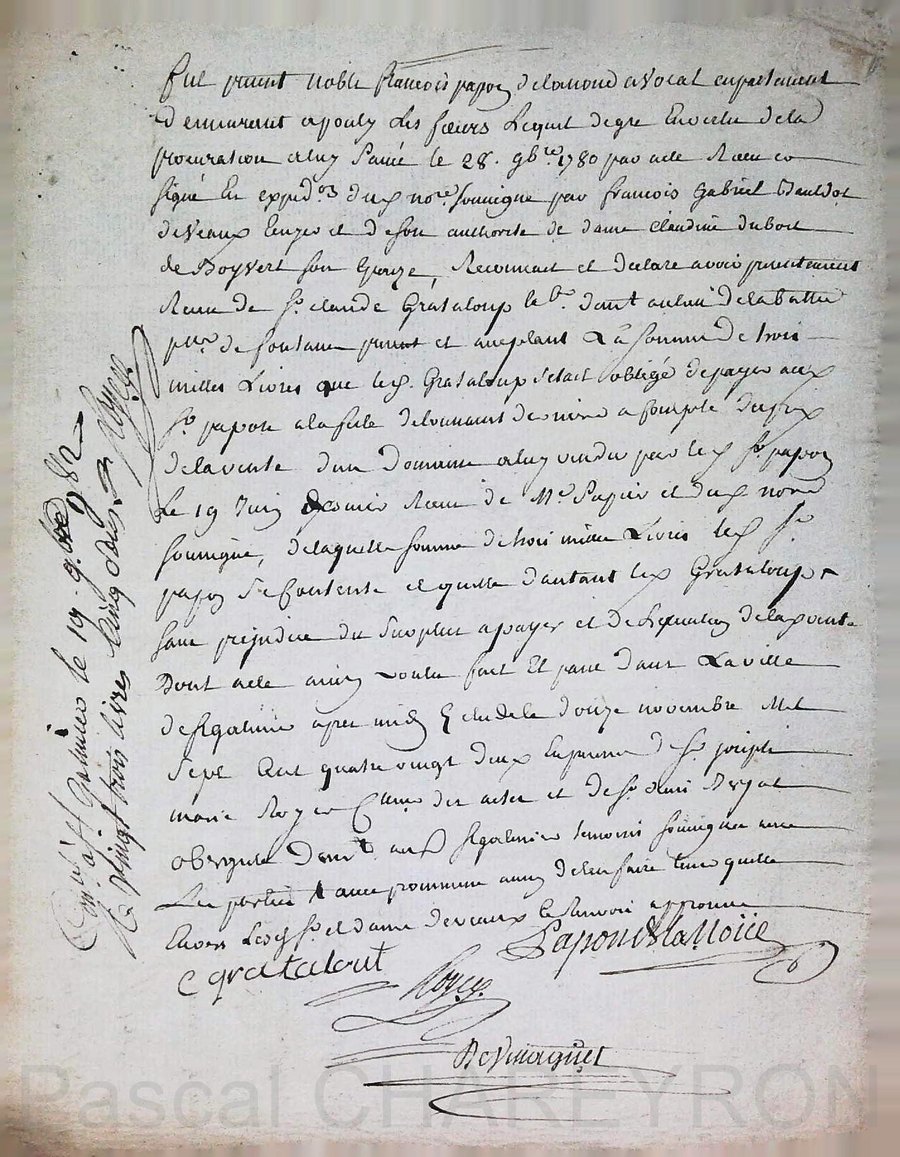 fut present noble francois papon delanoue avocat en parlement
demeurant a pouly Les feurs Lequel de gre En vertu de la
procuration a luy Passée le 28. 9bre. 1780 par acte Receu co
signé En expedon dud nore. soussigne par francois Gabriel
deveaux Ecuyer et de son authorité de dame claudine dubost
de Boyvert son Epouze, Reconnait et declare avoir presentement
Receu de Sr. claude Grataloup lab. dant au lieu de la
pss. de fontanes present et acceptant La somme de trois
milles Livres que led. Grataloup s'etait obligé de payer aud
Sr. papon a la fete de a compte du prix
de la vente d'un Domaine a luy vendu par led Sr. papon
Le 19 Juin dernier Receu de Me. Papier et dud nore
soussigne, de laquelle somme de trois mille Livres led Sr.
papon se contente et quitte d'autant led Grataloup
sans prejudice du surplus a payer et de l'execution de la vente
Dont acte ainsy voulu fait Et passé dans La ville
de St galmier apres midy Le douze novembre Mil
Sept Cent quatre vingt deux En presence de Sr. joseph
marie Royer Cmre des actes et de Sr.
demt. aud St galmier temoins soussignes avec
Les parties avec promesse ainsy de len faire tenir quitte
Envers Lesd Sr. et dame deveaux Le Renvoi approuvé
c gratalout
Papon de la Noüe
Royer
Devinaguet
Conlé à St Galmier le 19. 9bre 1782
Rx vingt trois livres cinq sous. Royer
Pascal CHAREYRON